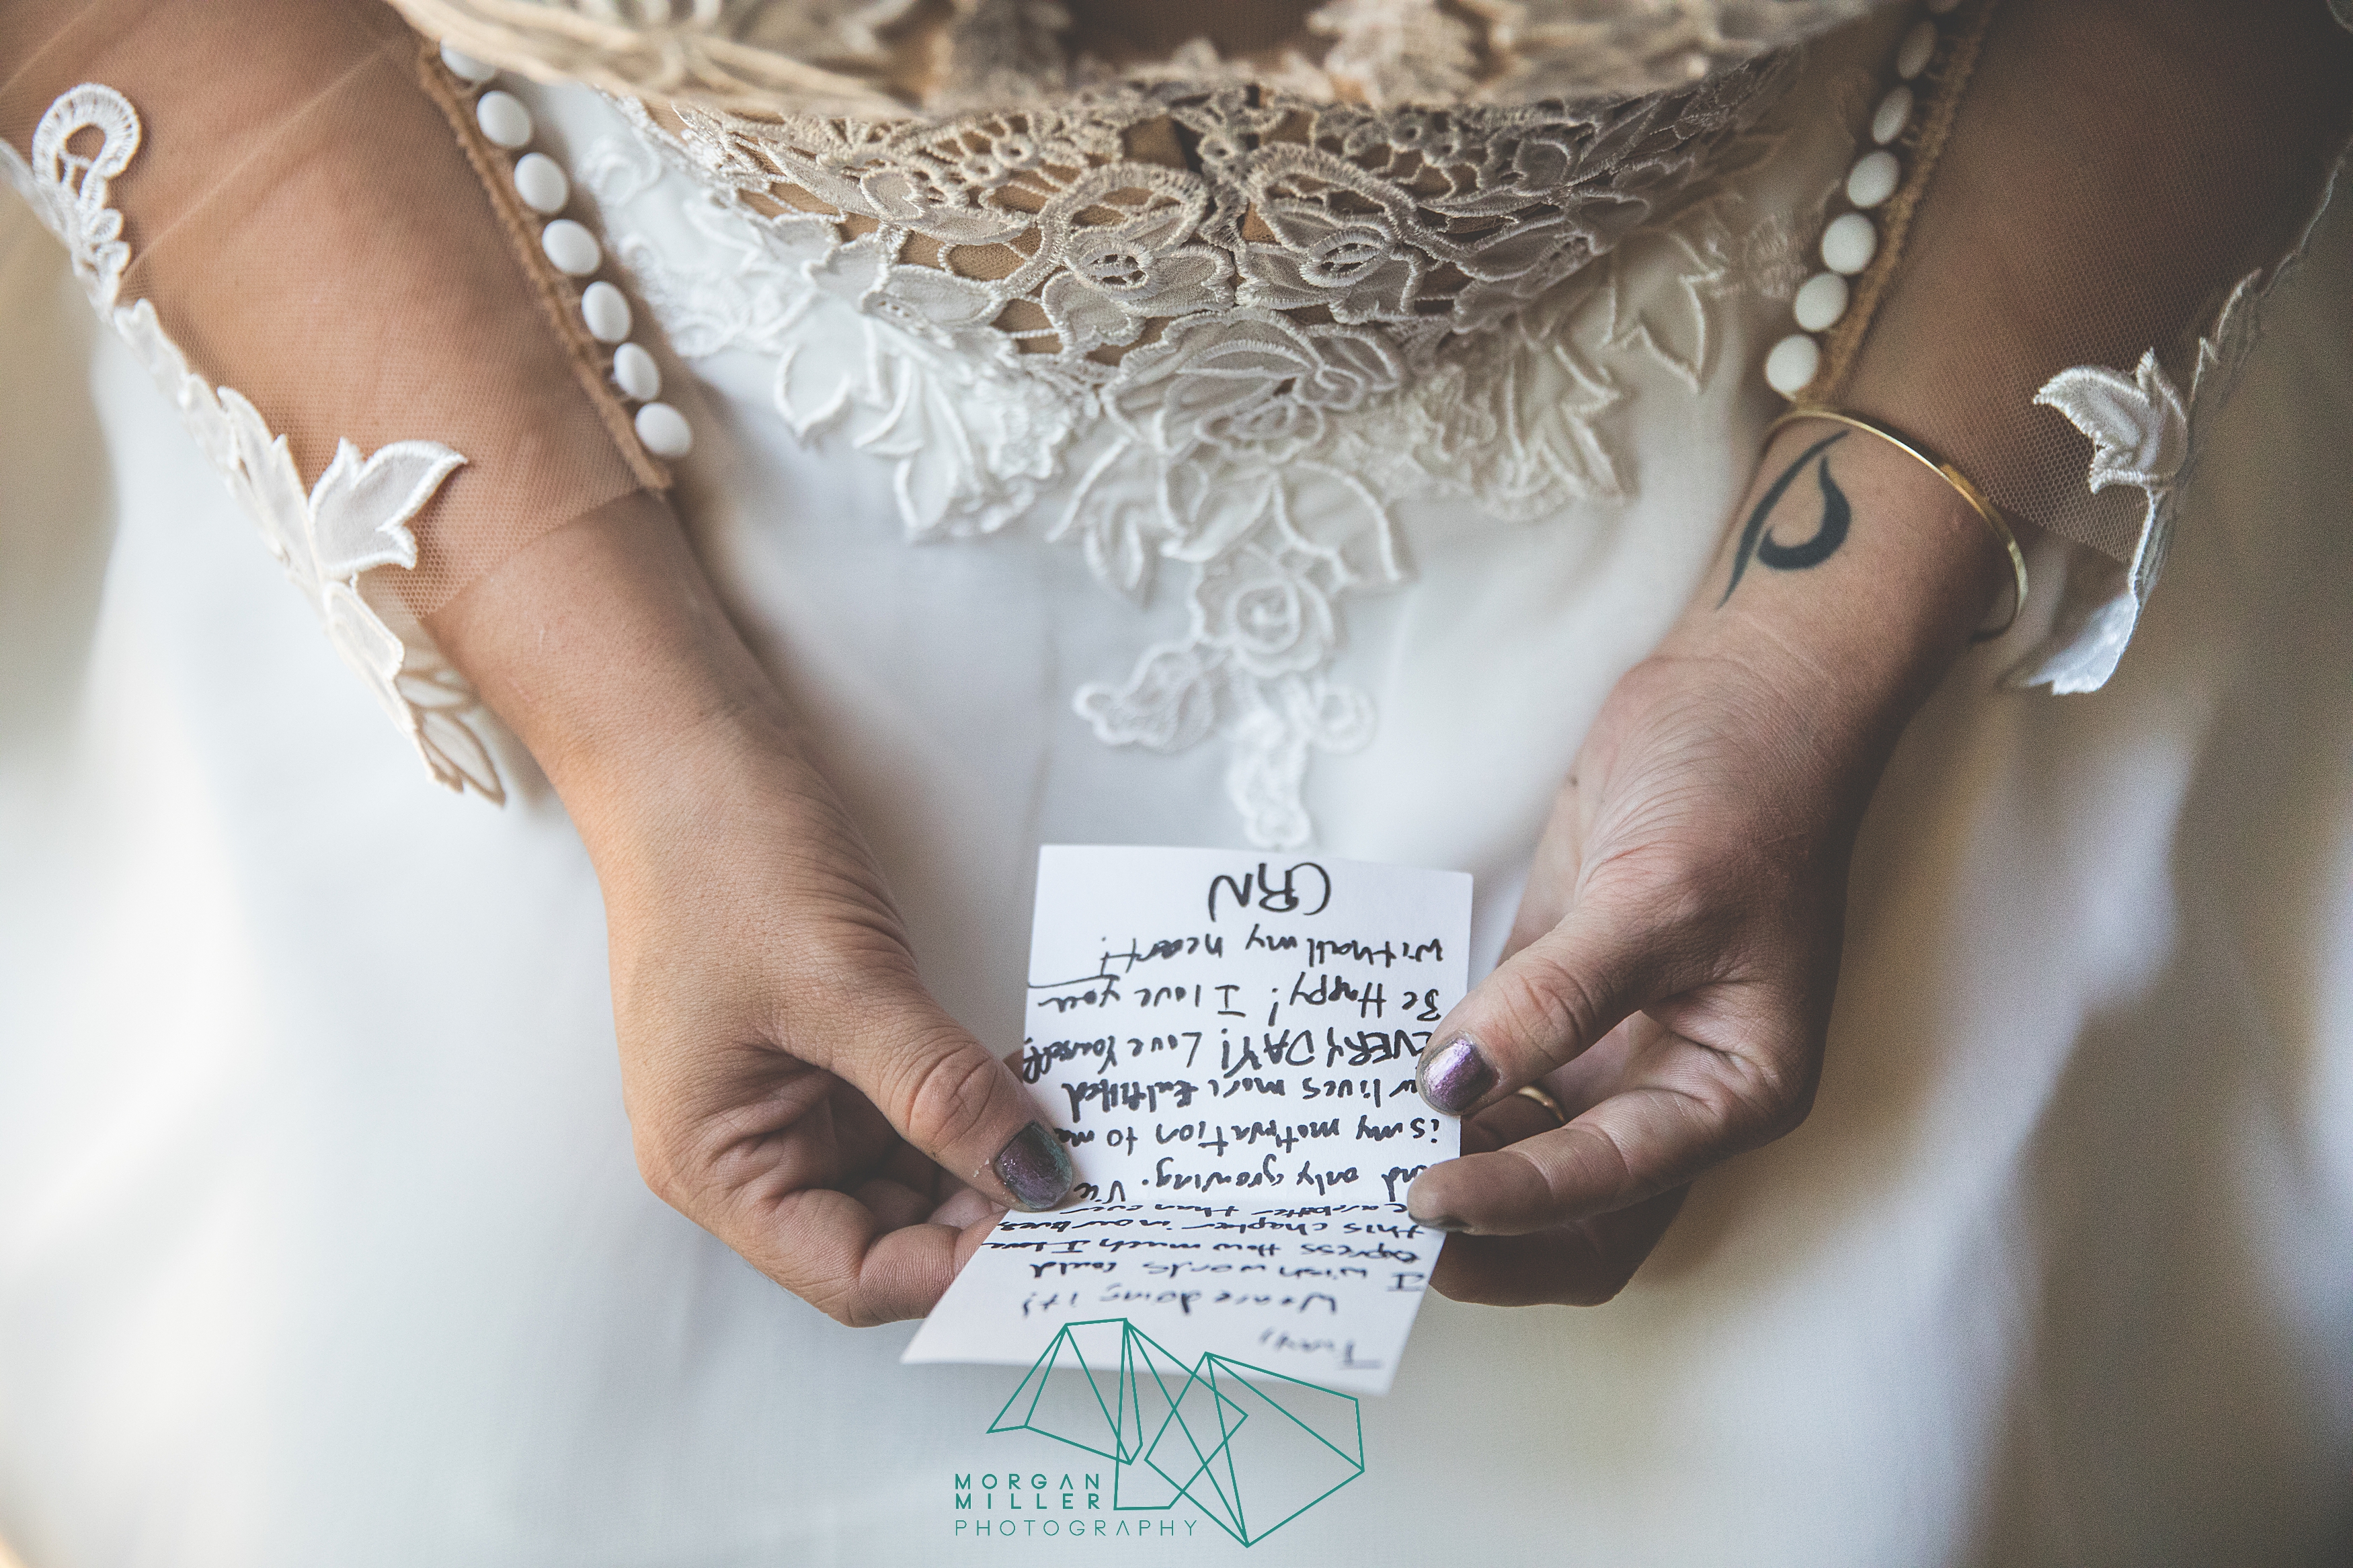 We are doing it!
I wish words could
express How much I love
this chapter in our lives.
are better than ever
and only growing.
is my motivation to
lives more fulfilled
EVERYDAY! Love Yourself!
Be Happy! I love you
with all my heart!
CRN
MORGAN
MILLER
PHOTOGRAPHY